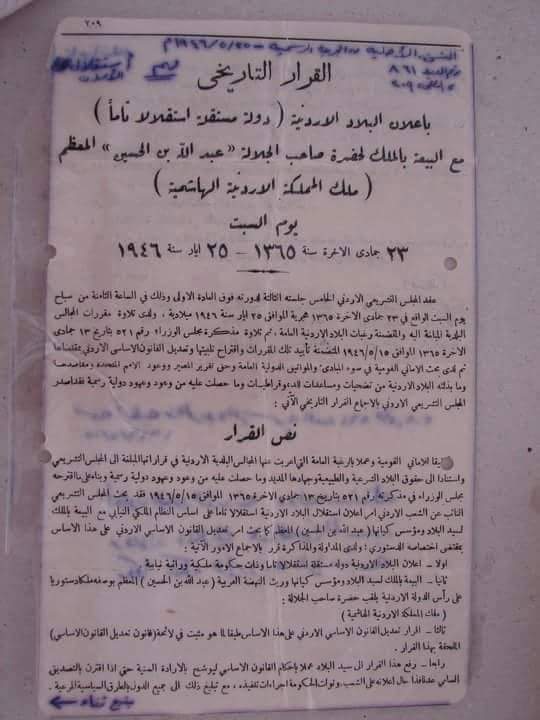 ٢٠٩
القرار التاريخي
باعلان البلاد الاردنية ( دولة مستقلة استقلالا تاماً )
مع البيعة بالملك لحضرة صاحب الجلالة « عبد الله بن الحسين » المعظم
( ملك المملكة الاردنية الهاشمية )
يوم السبت
٢٣ جمادى الاخرة سنة ١٣٦٥ - ٢٥ ايار سنة ١٩٤٦
عقد المجلس التشريعي الاردني الخامس جلسته الثالثة لدورته فوق العادة الاولى وذلك في الساعة الثامنة من صباح
يوم السبت الواقع في ٢٣ جمادى الاخرة ١٣٦٥ هجرية الموافق ٢٥ ايار سنة ١٩٤٦ ميلادية ، ولدى تلاوة مقررات المجالس
البلدية المبلغة اليه والمتضمنة رغبات البلاد الاردنية العامة ، ثم تلاوة مذكرة مجلس الوزراء رقم ٥٢١ بتاريخ ١٣ جمادى
الاخرة ١٣٦٥ الموافق ١٩٤٦/٥/١٥ المتضمنة تأييد تلك المقررات واقتراح تلبيتها وتعديل القانون الاساسي الاردني بمقتضاها
ثم لدى بحث الاماني القومية في ضوء المبادىء والمواثيق الدولية العامة وحق تقرير المصير ووعود الامم المتحدة ومقاصدها
وما بذلته البلاد الاردنية من تضحيات ومساعدات للديموقراطيات وما حصلت عليه من وعود وعهود دولية رسمية فقد اصدر
المجلس التشريعي الاردني بالاجماع القرار التاريخي الآتي :
نص القرار
للاماني القومية وعملا بالرغبة العامة التي اعربت عنها المجالس البلدية الاردنية في قراراتها المبلغة الى المجلس التشريعي
واستنادا الى حقوق البلاد الشرعية والطبيعية وجهادها المديد وما حصلت عليه من وعود وعهود دولية رسمية وبناء على ما اقترحه
مجلس الوزراء في مذكرته رقم ٥٢١ بتاريخ ١٣ جمادى الاخرة ١٣٦٥ الموافق ١٩٤٦/٥/١٥ فقد بحث المجلس التشريعي
النائب عن الشعب الاردني امر اعلان استقلال البلاد الاردنية استقلالا تاما على اساس النظام الملكي النيابي مع البيعة بالملك
لسيد البلاد ومؤسس كيانها ( عبد الله بن الحسين ) المعظم كما بحث امر تعديل القانون الاساسي الاردني على هذا الاساس
بمقتضى اختصاصه الدستوري ؛ ولدى المداولة والمذاكرة قرر بالاجماع الامور الآتية :
اولا - اعلان البلاد الاردنية دولة مستقلة استقلالا تاما وذات حكومة ملكية وراثية نيابية
ثانيا - البيعة بالملك لسيد البلاد ومؤسس كيانها وريث النهضة العربية ( عبد الله بن الحسين ) المعظم بوصفه ملكا دستوريا
على رأس الدولة الاردنية بلقب حضرة صاحب الجلالة :
( ملك المملكة الاردنية الهاشمية )
ثالثا - اقرار تعديل القانون الاساسي الاردني على هذا الاساس طبقا لما هو مثبت في لائحة ( قانون تعديل القانون الاساسي )
الملحقة بهذا القرار .
رابعا - رفع هذا القرار الى سيد البلاد عملا باحكام القانون الاساسي ليوشح بالارادة السنية حتى اذا اقترن بالتصديق
السامي عد نافذا حال اعلانه على الشعب وتولت الحكومة اجراءات تنفيذه ، مع تبليغ ذلك الى جميع الدول بالطرق السياسية المرعية .